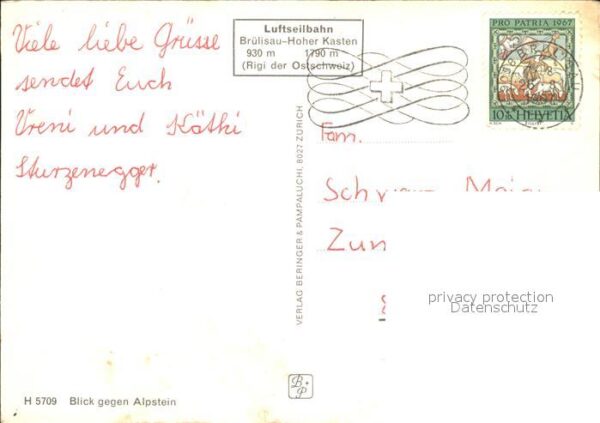 Viele liebe Grüsse
sendet Euch
Vreni und Käthi
Sturzenegger.
Luftseilbahn
Brülisau-Hoher Kasten
930 m 1790 m
(Rigi der Ostschweiz)
PRO PATRIA 1967
10+10 HELVETIA
Fam.
VERLAG BERINGER & PAMPALUCHI, 8027 ZÜRICH
privacy protection
Datenschutz
B.
P
H 5709 Blick gegen Alpstein